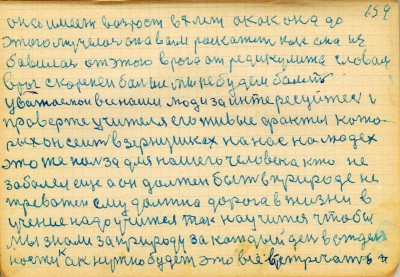 659
она имеет возрост 87 лет а как она до
этого мучелась она вам роскажит как она из
бавилась от этого врога от редикулита словам
врог скорей больше мы не будем болеть
уважаемои все наши люди заинтересуйтесь и
проверте учителя его живые факты кото-
рых он сеит в зернушках на нас на людях
это же польза для нашего человека кто не
заболел еще а он должен быть в природе не
тревожен ему должна дорога в жизни в
учение надо учится так научится чтобы
мы знали за природу за каждый день в жден
ности как нужно будет это все встречать в